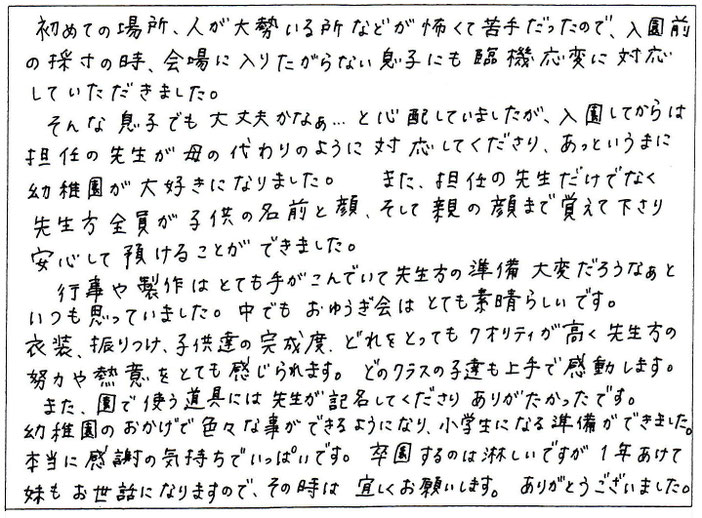 初めての場所、人が大勢いる所などが怖くて苦手だったので、入園前
の採寸の時、会場に入りたがらない息子にも臨機応変に対応
していただきました。
そんな息子でも大丈夫かなぁ…と心配していましたが、入園してからは
担任の先生が母の代わりのように対応してくださり、あっというまに
幼稚園が大好きになりました。 また、担任の先生だけでなく
先生方全員が子供の名前と顔、そして親の顔まで覚えて下さり
安心して預けることができました。
行事や製作はとても手がこんでいて先生方の準備大変だろうなぁと
いつも思っていました。中でもおゆうぎ会はとても素晴らしいです。
衣装、振りつけ、子供達の完成度、どれをとってもクオリティが高く先生方の
努力や熱意をとても感じられます。どのクラスの子達も上手で感動します。
また、園で使う道具には先生が記名してくださりありがたかったです。
幼稚園のおかげで色々な事ができるようになり、小学生になる準備ができました。
本当に感謝の気持ちでいっぱいです。卒園するのは淋しいですが1年あけて
妹もお世話になりますので、その時は宜しくお願いします。ありがとうございました。